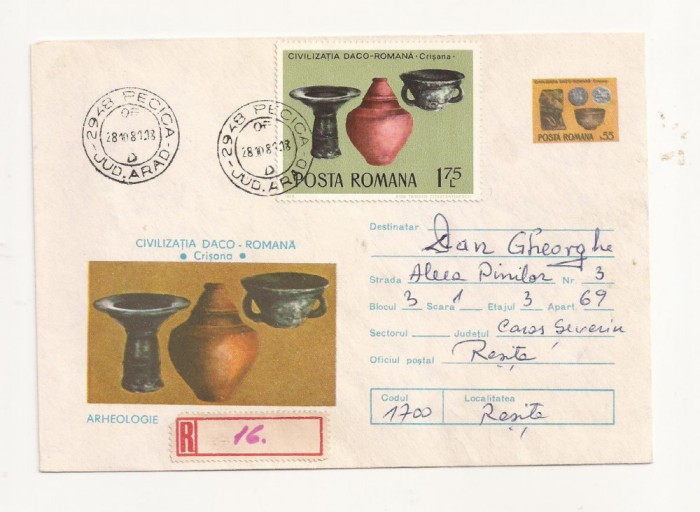 2948 PECICA
OF
28.10.8
D
JUD. ARAD
2948 PECICA
OF
28.10.8
D
JUD. ARAD
CIVILIZAȚIA DACO-ROMANĂ - Crișana -
POSTA ROMANA 1 75 L
CIVILIZAȚIA DACO-ROMANĂ-Crișana
POSTA ROMANA L 55
CIVILIZAȚIA DACO - ROMANĂ
• Crișana •
ARHEOLOGIE
R 16.
Destinatar Dan Gheorghe
Strada Aleea Pinilor Nr. 3
Blocul 3 Scara 1 Etajul 3 Apart. 69
Sectorul Județul Caraș Severin
Oficiul poștal Reșița
Codul Localitatea
1700 Reșița